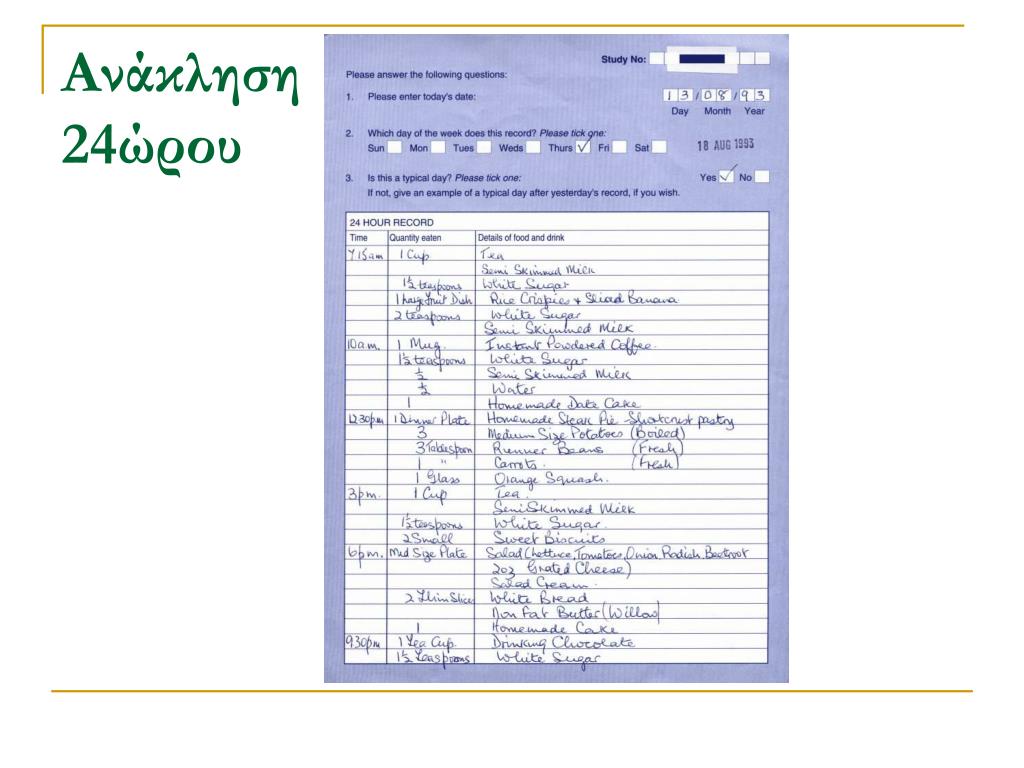 Ανάκληση
24ώρου
Study No:
Please answer the following questions:
1. Please enter today's date: 13/08/93
Day Month Year
2. Which day of the week does this record? Please tick one:
Sun Mon Tues Weds Thurs ✓ Fri Sat 18 AUG 1993
3. Is this a typical day? Please tick one: Yes ✓ No
If not, give an example of a typical day after yesterday's record, if you wish.
24 HOUR RECORD
Time Quantity eaten Details of food and drink
7.15am 1 Cup Tea
Semi Skimmed Milk
1½ teaspoons White Sugar
1 large fruit Dish Rice Crispies + Sliced Banana
2 teaspoons White Sugar
Semi Skimmed Milk
10am. 1 Mug. Instant Powdered Coffee.
1½ teaspoons White Sugar
½ Semi Skimmed Milk
½ Water
1 Homemade Date Cake
12.30pm 1 Dinner Plate Homemade Steak Pie - Shortcrust pastry
3 Medium Size Potatoes (Boiled)
3 Tablespoon Runner Beans (Fresh)
1 " Carrots. (Fresh)
1 Glass Orange Squash.
3pm. 1 Cup Tea.
Semi Skimmed Milk
1½ teaspoons White Sugar.
2 Small Sweet Biscuits
6pm. Med Size Plate Salad (Lettuce, Tomatoes, Onion Radish Beetroot
2oz Grated Cheese)
Salad Cream.
2 Thin Slices White Bread
Non Fat Butter (Willow)
1 Homemade Cake
9.30pm 1 Tea Cup. Drinking Chocolate
1½ Teaspoons White Sugar